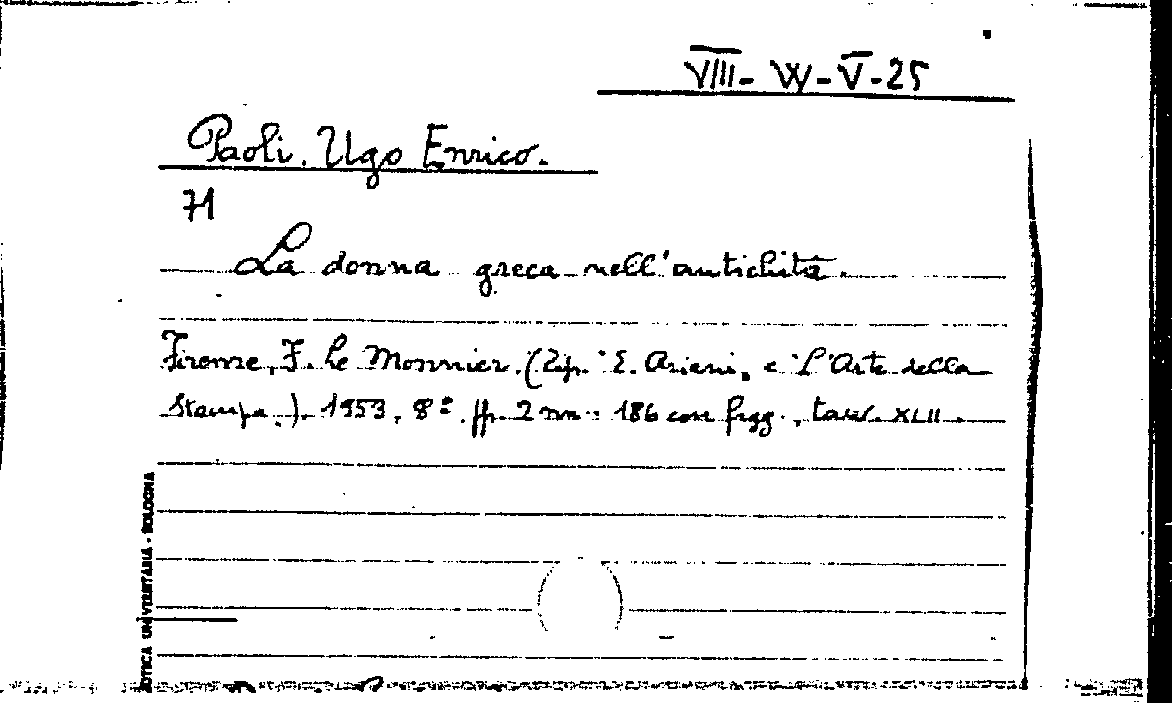 VIII - W - V - 25
Paoli. Ugo Enrico.
71
La donna greca nell'antichità.
Firenze, F. Le Monnier. (Tip. E. Ariani, e L'Arte della
Stampa.). 1953, 8º. pp. 2 nn. 186 con figg., tavv. XLII.
UNIVERSITARIA - BOLOGNA